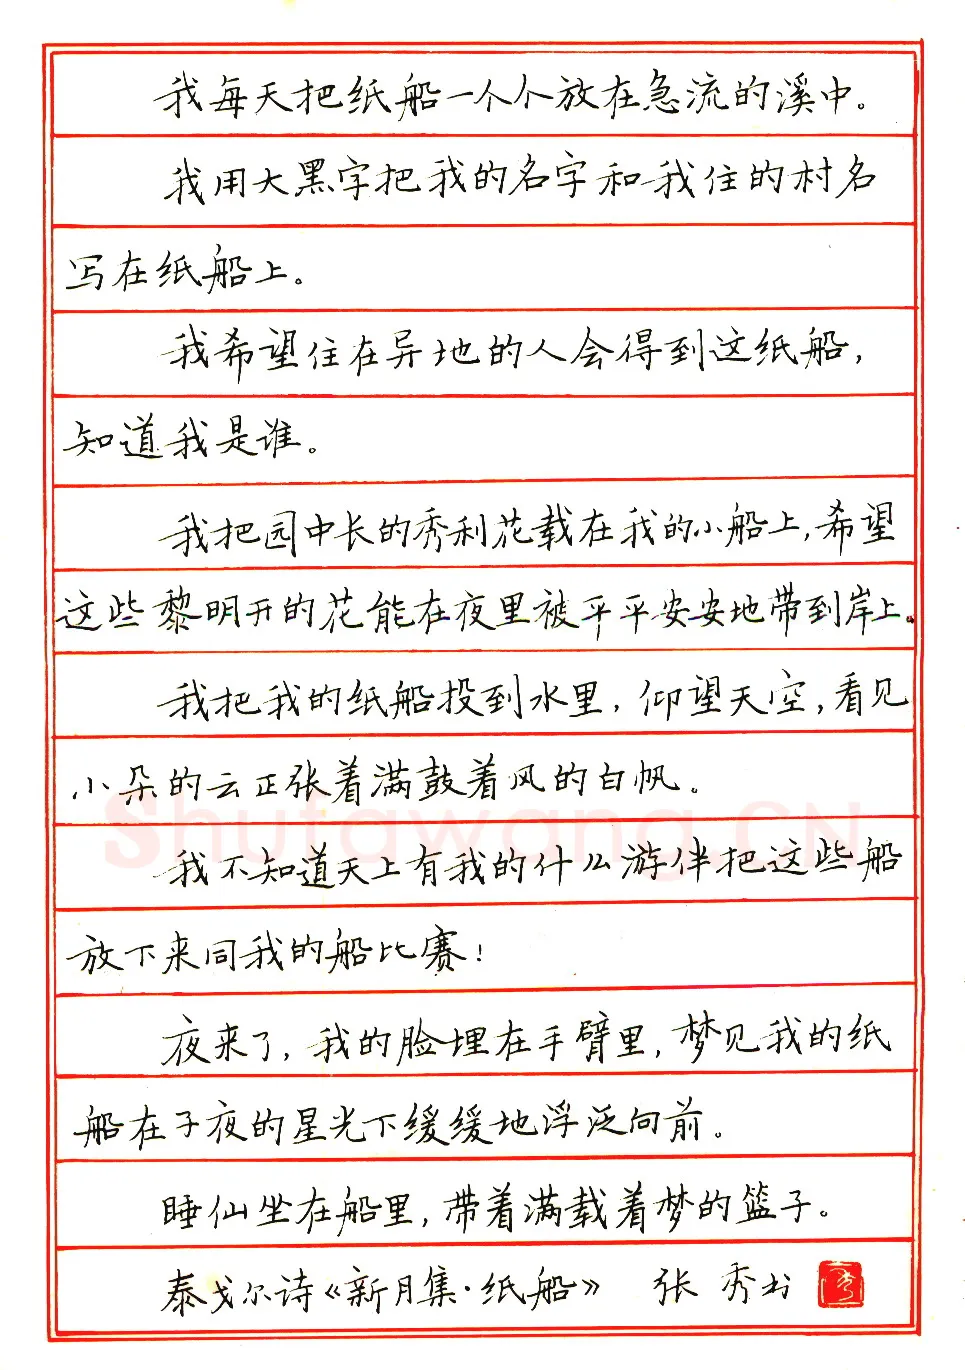 我每天把纸船一个个放在急流的溪中。
我用大黑字把我的名字和我住的村名
写在纸船上。
我希望住在异地的人会得到这纸船，
知道我是谁。
我把园中长的秀利花载在我的小船上，希望
这些黎明开的花能在夜里被平平安安地带到岸上。
我把我的纸船投到水里，仰望天空，看见
小朵的云正张着满鼓着风的白帆。
Shufawang.CN
我不知道天上有我的什么游伴把这些船
放下来同我的船比赛！
夜来了，我的脸埋在手臂里，梦见我的纸
船在子夜的星光下缓缓地浮泛向前。
睡仙坐在船里，带着满载着梦的篮子。
泰戈尔诗《新月集·纸船》 张秀书